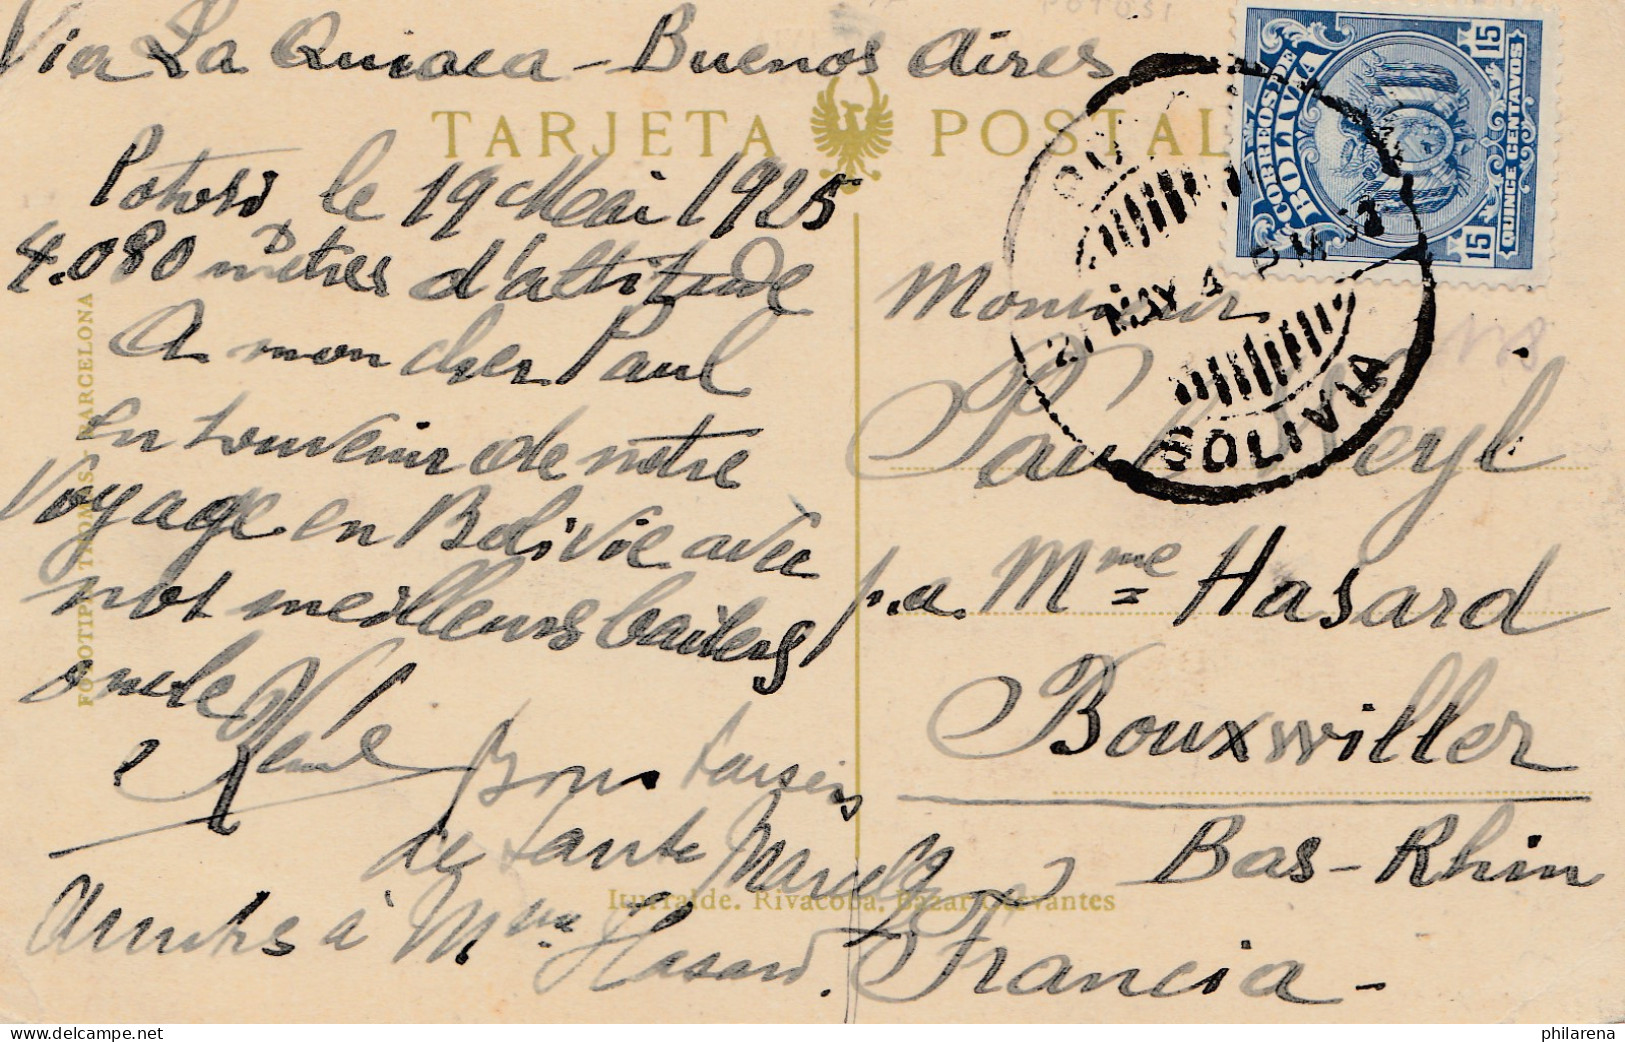 Via La Quiaca - Buenos Aires
TARJETA POSTAL
CORREOS DE
BOLIVIA
15 15
QUINCE CENTAVOS
Potosi le 19 Mai 1925
4.080 mètres d'altitude
A mon cher Paul
en souvenir de notre
Voyage en Bolivie avec
nos meilleurs baisers
oncle René
Bons baisers
de tante Marcelle
Amitiés à Mme Hasard.
21 MAY 4 PM
BOLIVIA
Monsieur
Paul Weyl
p.a. Mme Hasard
Bouxwiller
Bas-Rhin
Francia -
FOTOTIPIA THOMAS - BARCELONA
Iturralde. Rivacoba. Bazar Cervantes
philarena